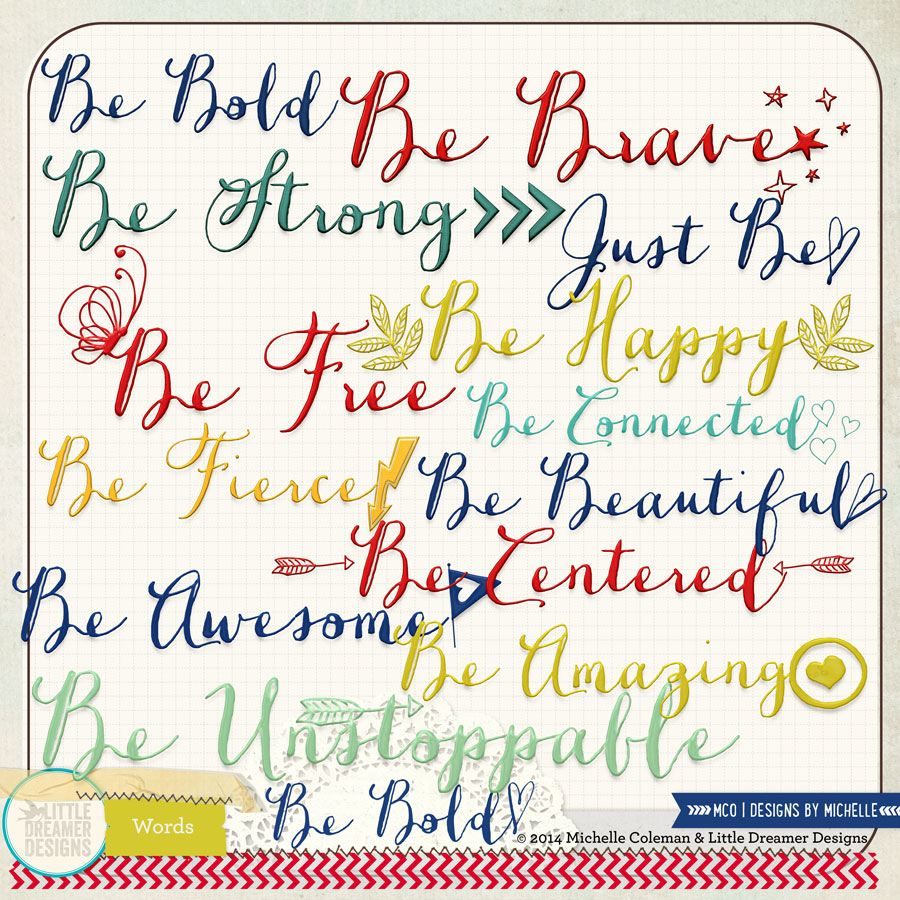 Be Bold
Be Brave
Be Strong
Just Be
Be Happy
Be Free
Be Connected
Be Fierce
Be Beautiful
Be Centered
Be Awesome
Be Amazing
Be Unstoppable
Be Bold
LITTLE
DREAMER
DESIGNS
Words
MCO | DESIGNS BY MICHELLE
© 2014 Michelle Coleman & Little Dreamer Designs